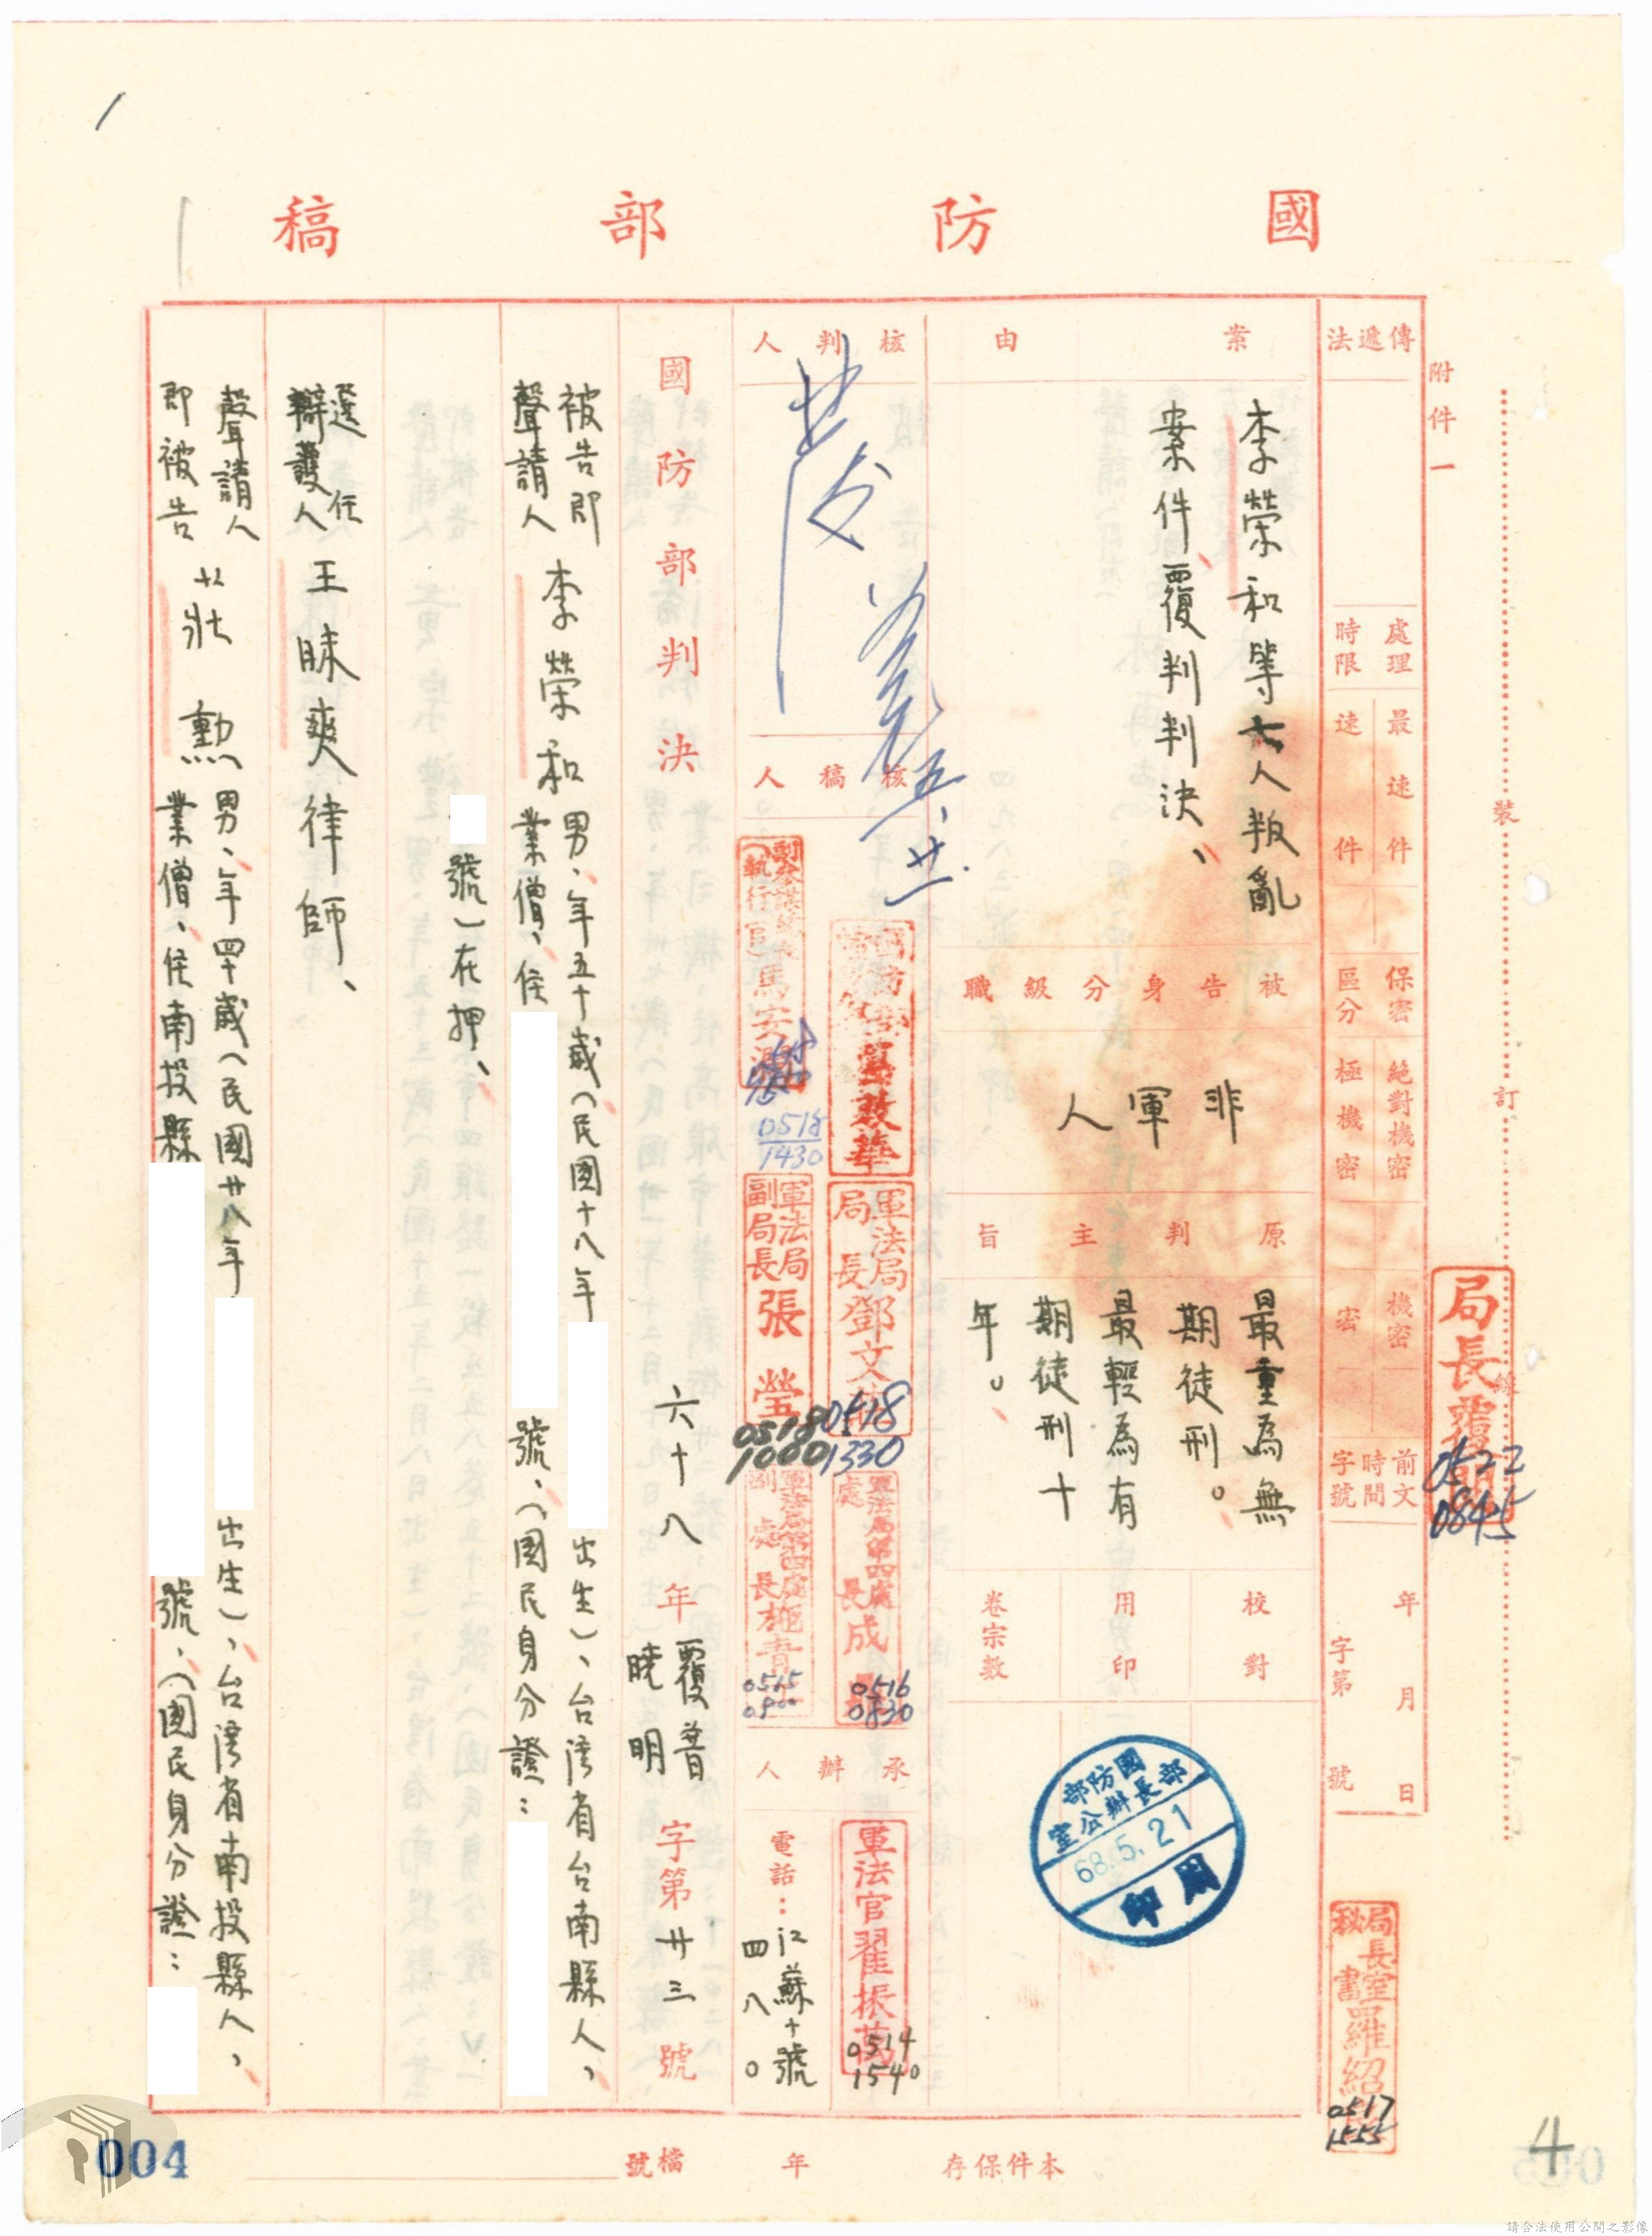 國防部稿
附件一
傳遞法
處理時限
最速件
速件
保密區分
絕對機密
極機密
機密
密
前文時間字號
年月日
字第 號
裝
訂
線
局長覆閱
0522
0845
局長室秘書羅紹
0517
1555
案由
李榮和等六人叛亂
案件覆判判決、
被告身分級職
非軍人
原判主旨
最重為無
期徒刑。
最輕為有
期徒刑十
年。
校對
用印
卷宗數
國防部
部長辦公室
68.5.21
用印
核判人
五、廿一
核稿人
國防部
軍法局局長鄧文
0518
1330
軍法局第四處處長成
0516
0830
副參謀總長
(執行官)馬安瀾
0518
1430
軍法局副局長張瑩
0518
1000
軍法局第四處副處長施
0515
0900
承辦人
軍法官翟振萬
0514
1540
電話：江蘇十號
四八〇
國防部判決
六十八年覆普曉明字第廿三號
被告即
聲請人 李榮和 男、年五十歲(民國十八年 出生)、台灣省台南縣人、
業僧、住 號、(國民身分證：
號)在押、
選任
辯護人 王脉爽律師、
聲請人
即被告 莊 勳 男、年四十歲(民國廿八年 出生)、台灣省南投縣人、
業僧、住南投縣 號、(國民身分證：
本件保存 年 檔號
004
4
請合法使用公開之影像